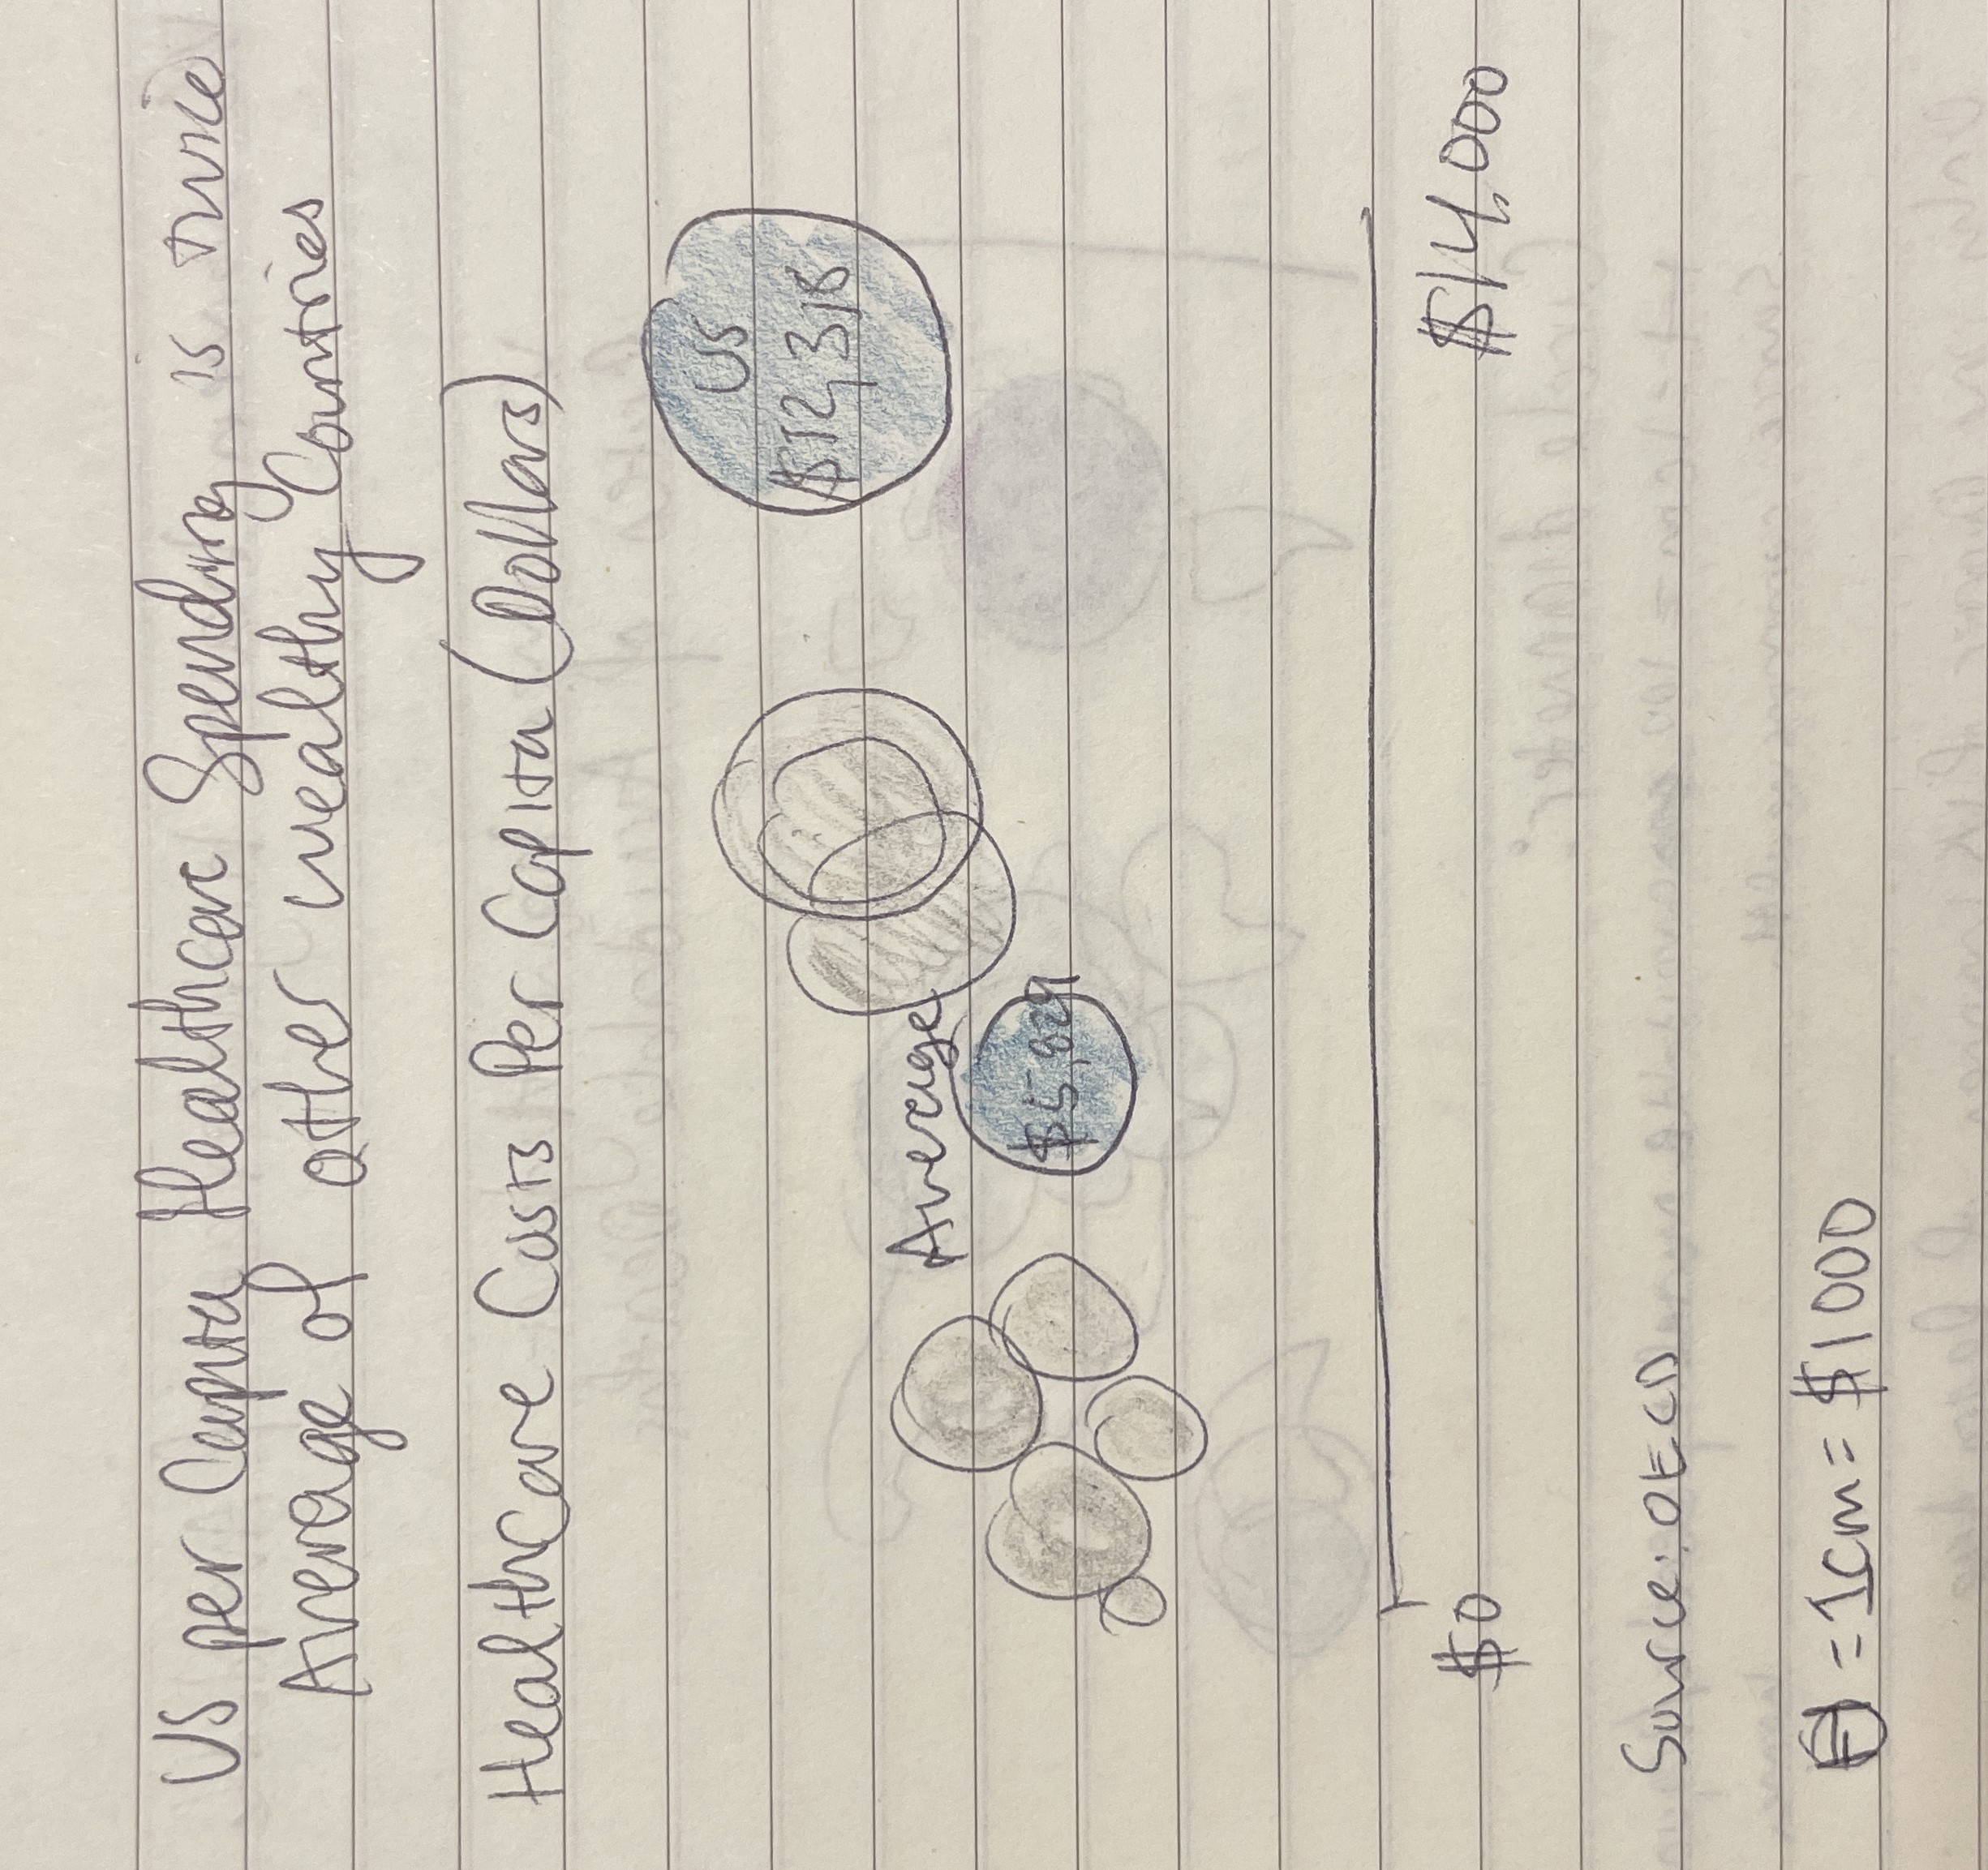 US per Capita Healthcare Spending is Twice
Average of other wealthy Countries
HealthCare Costs Per Capita (Dollars)
US
$12,318
Average
$5,829
$0
$14,000
Source: OECD
= 1cm = $1000